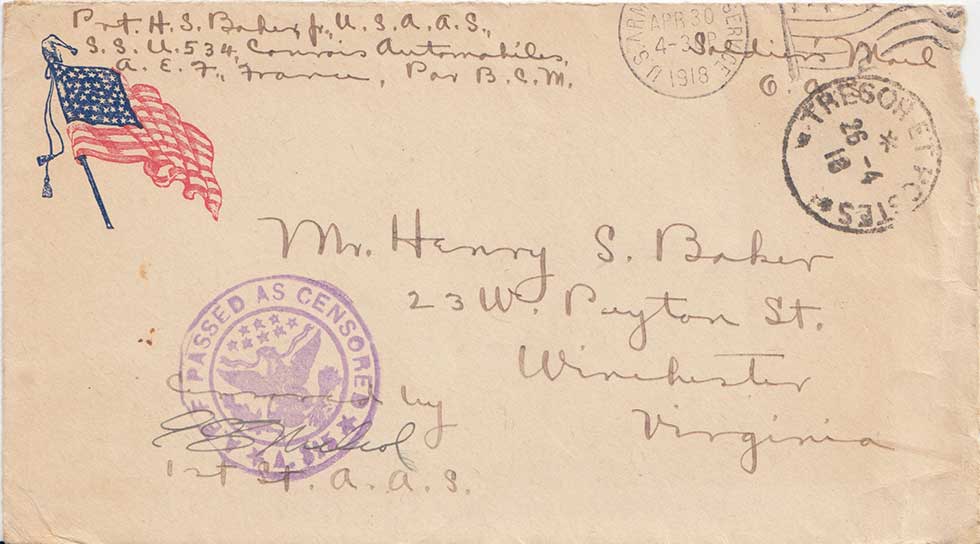 Pvt. H. S. Baker, Jr., U. S. A. A. S.,
S. S. U. 534, Convois Automobiles,
A. E. F., France, Par B. C. M.
U.S. ARMY SERVICE
APR 30
4-30P
1918
Soldier's Mail
TRESOR ET POSTES
26 -4
18
Mr. Henry S. Baker
23 W. Peyton St.
Winchester
Virginia
PASSED AS CENSORED
A.E.F.
Censored by
1st Lt. A. A. S.